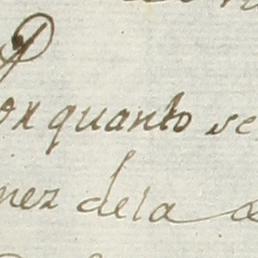 or quanto se
nez dela